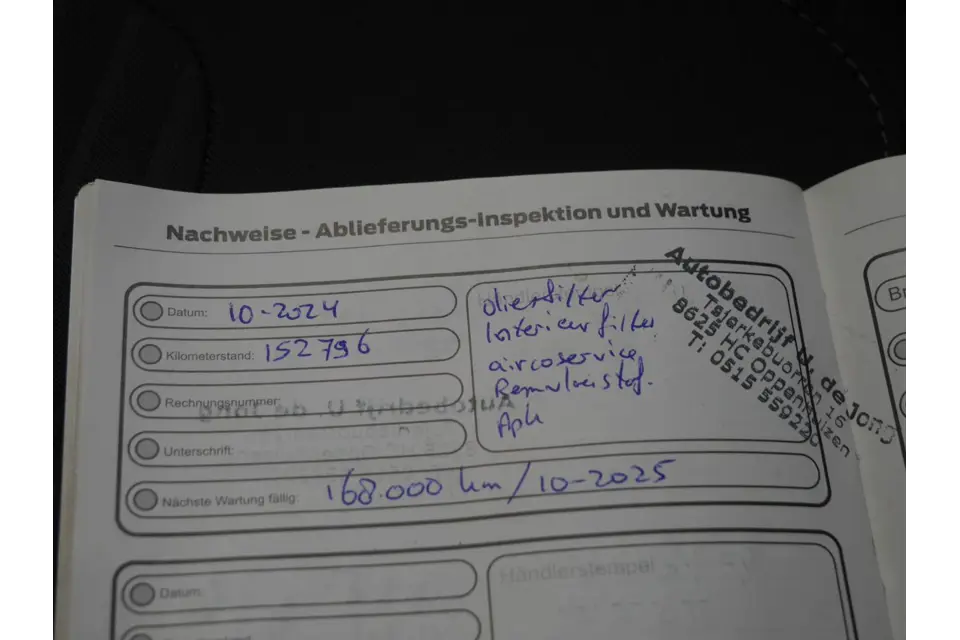 Nachweise - Ablieferungs-Inspektion und Wartung
Datum: 10-2024
Kilometerstand: 152796
Rechnungsnummer:
Unterschrift:
Nächste Wartung fällig: 168.000 km/10-2025
oliesfilter
Interieurfilter
aircoservice
Remvloeistof.
Apk
Autobedrijf U. de Jong
16
8625 HC Oppenhuizen
T: 0515 559220
Datum:
Händlerstempel